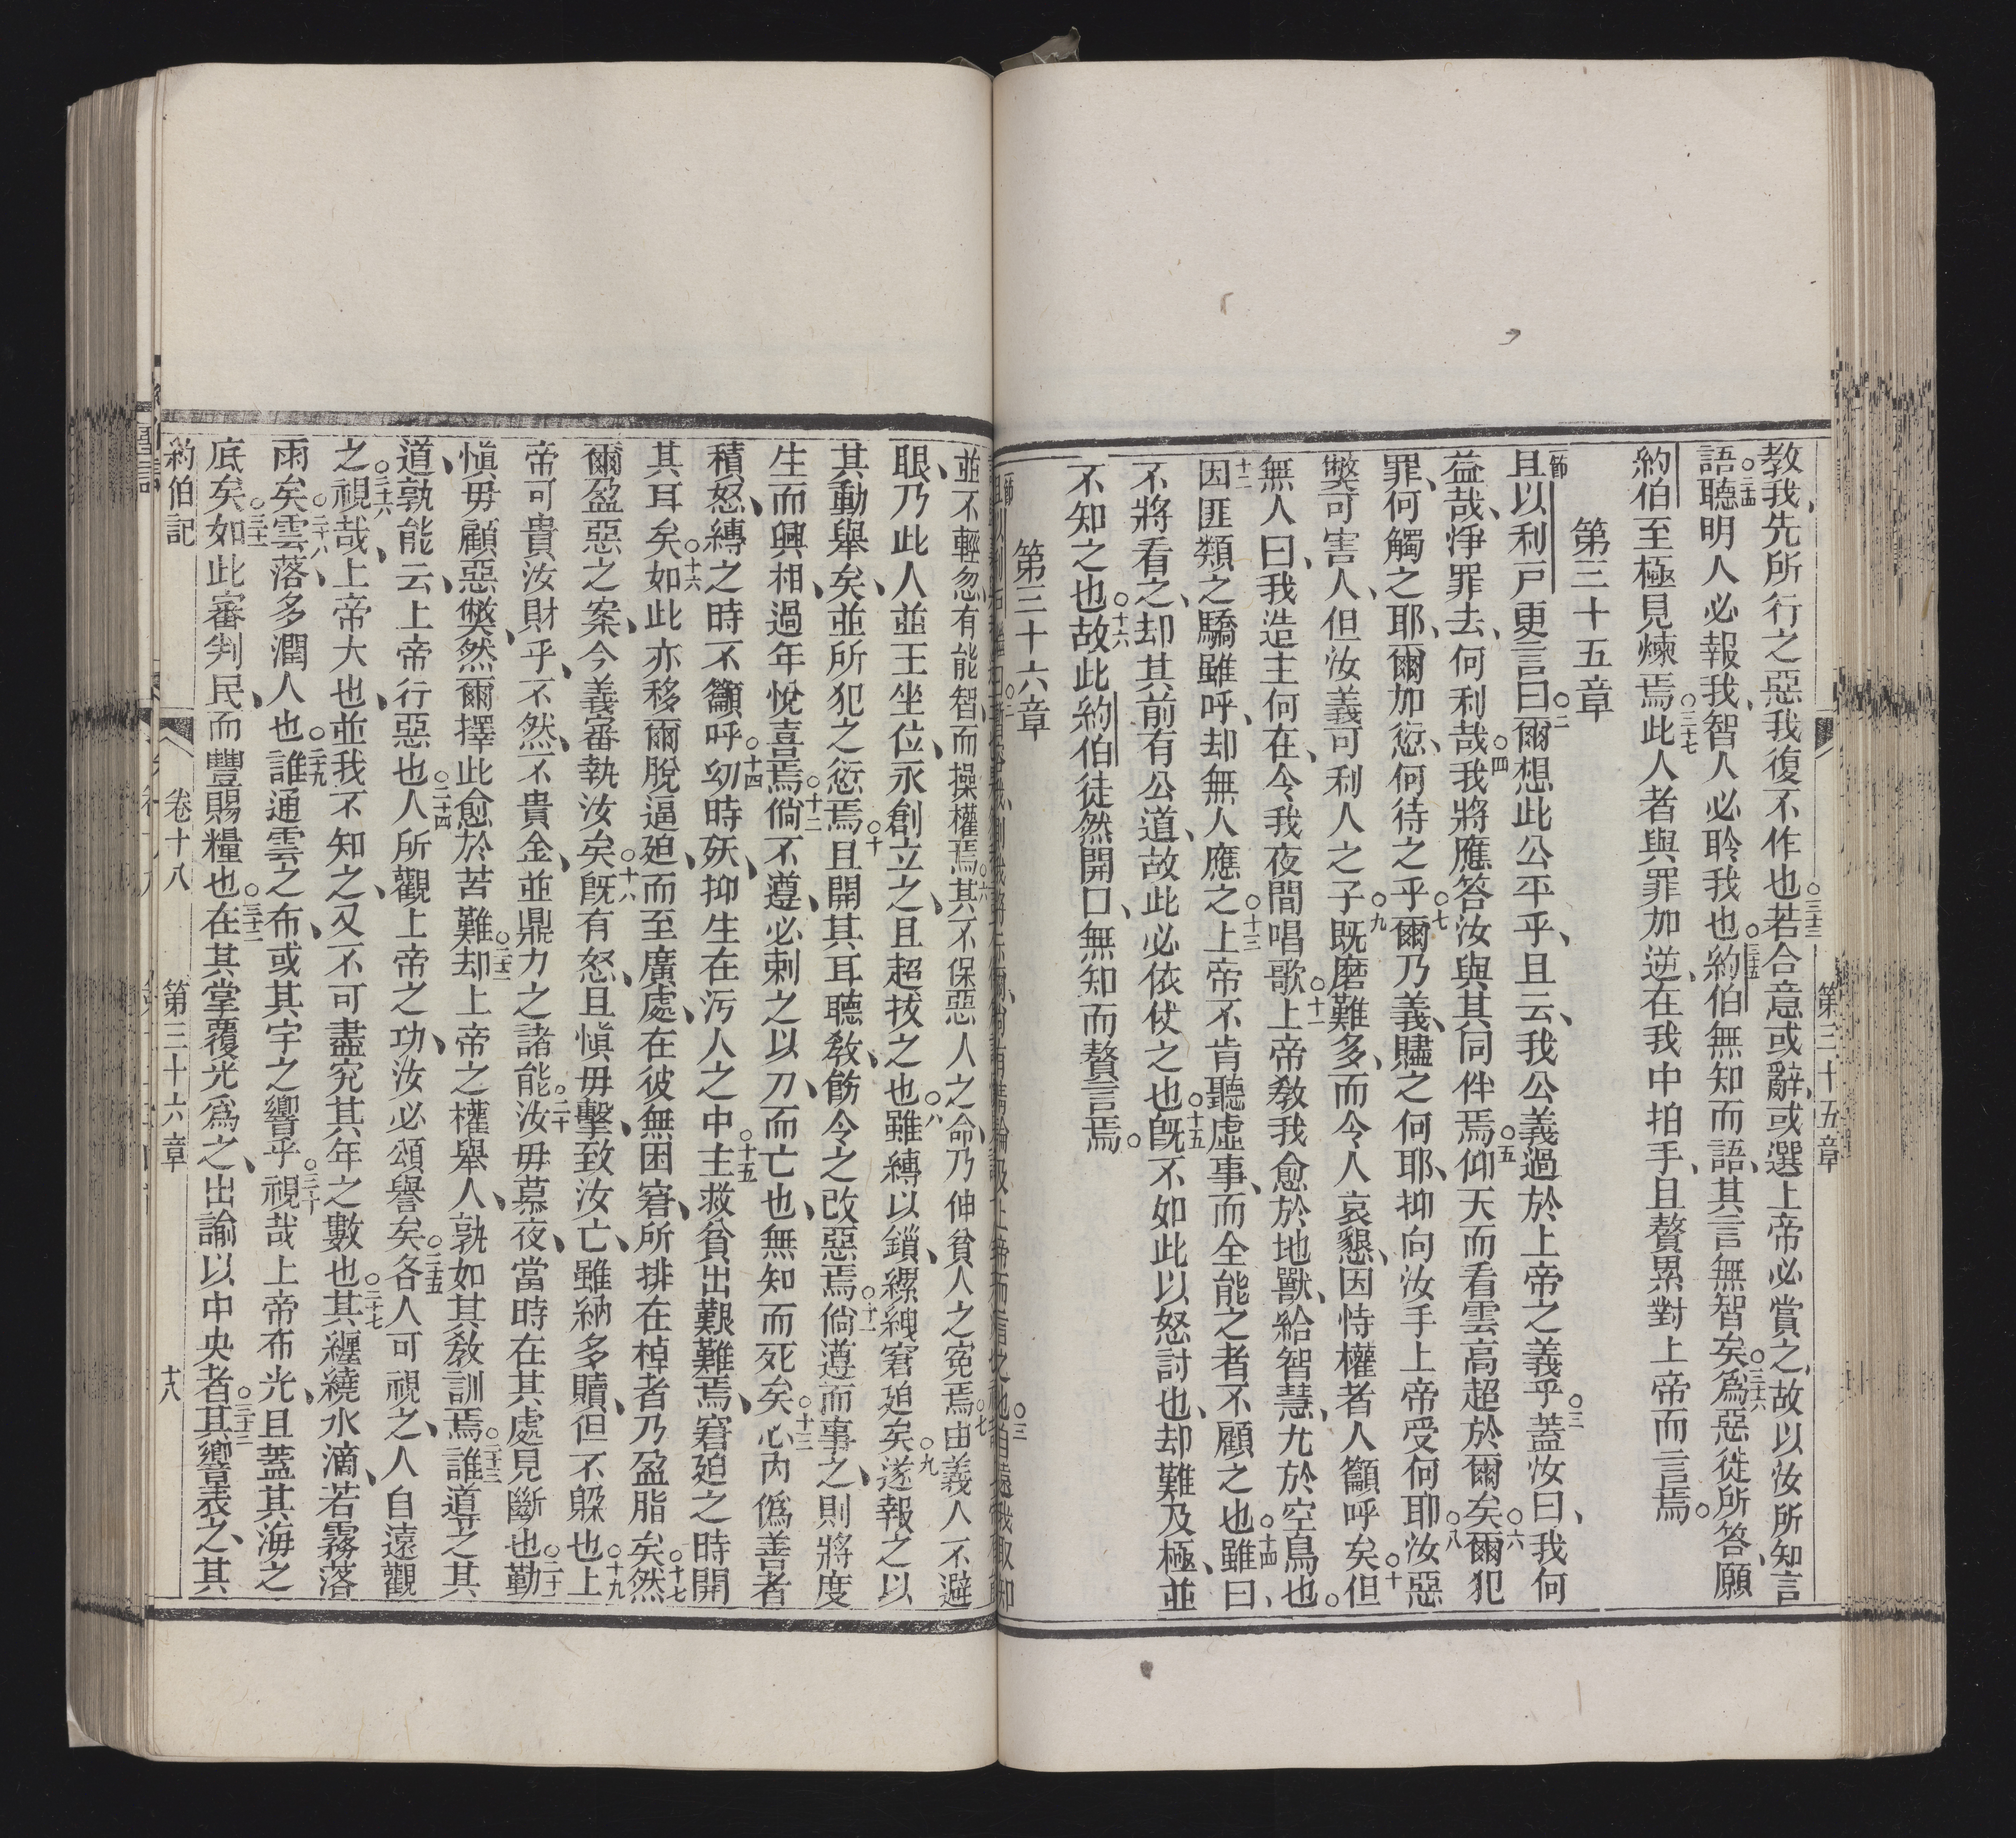 第三十五章
教我、先所行之惡我復不作也○三十三若合意或辭、或選上帝必賞之、故以汝所知言
語○三十四聽明人必報我、智人必聆我也○三十五約伯無知而語、其言無智矣○三十六爲惡徒所答、願
約伯至極見煉焉○三十七此人者與罪加逆、在我中拍手、且贅累對上帝而言焉○
第三十五章
節且以利戸更言曰○二爾想此公平乎、且云、我公義過於上帝之義乎○三蓋汝曰、我何
益哉、淨罪去、何利哉○四我將應答汝與其同伴焉○五仰天而看雲高超於爾矣○六爾犯
罪、何觸之耶、爾加愆、何待之乎○七爾乃義、贐之何耶、抑向汝手上帝受何耶○八汝惡
獘可害人、但汝義可利人之子○九既磨難多、而令人哀懇、因恃權者人籲呼矣○十但
無人曰、我造主何在、今我夜間唱歌○十一上帝教我愈於地獸、給智慧、尤於空鳥也○
十二因匪類之驕雖呼、却無人應之○十三上帝不肯聽虛事、而全能之者不顧之也○十四雖曰、
不將看之、却其前有公道、故此必依仗之也○十五既不如此以怒討也、却難及極、並
不知之也○十六故此約伯徒然開口、無知而贅言焉○
第三十六章
並不輕忽、有能智、而操權焉○六其不保惡人之命、乃伸貧人之寃焉○七由義人不避
眼、乃此人並王坐位、永創立之、且超拔之也○八雖縛以鎖、縲絏窘廹矣○九遂報之以
其動舉矣、並所犯之愆焉○十且開其耳聽教、飭令之改惡焉○十一倘遵而事之、則將度
生而興相、過年悅喜焉○十二倘不遵、必刺之以刀、而亡也、無知而死矣○十三心內僞善者
積怒、縛之時不籲呼○十四幼時殀、抑生在污人之中○十五主救貧出艱難焉、窘廹之時開
其耳矣○十六如此亦移爾脫逼廹、而至廣處、在彼無困窘、所排在棹者乃盈脂矣○十七然
爾盈惡之案、今義審執汝矣○十八既有怒、且愼毋擊、致汝亡、雖納多贖、但不躱也○十九上
帝可貴汝財乎、不然、不貴金、並鼎力之諸能○二十汝毋慕夜、當時在其處見斷也○二十一勤
愼毋顧惡獘、然爾擇此愈於苦難○二十二却上帝之權舉人、孰如其敎訓焉○二十三誰道之其
道、孰能云、上帝行惡也○二十四人所觀上帝之功、汝必頌譽矣○二十五各人可視之、人自遠觀
之○二十六視哉、上帝大也、並我不知之、又不可盡究其年之數也○二十七其纏繞水滴、若霧落
雨矣○二十八雲落、多潤人也○二十九誰通雲之布、或其宇之響乎○三十視哉上帝布光、且蓋其海之
底矣○三十一如此審判民、而豐賜糧也○三十二在其掌覆光爲之、出諭以中央者○三十三其響表之、其
約伯記 卷十八 第三十六章 十八